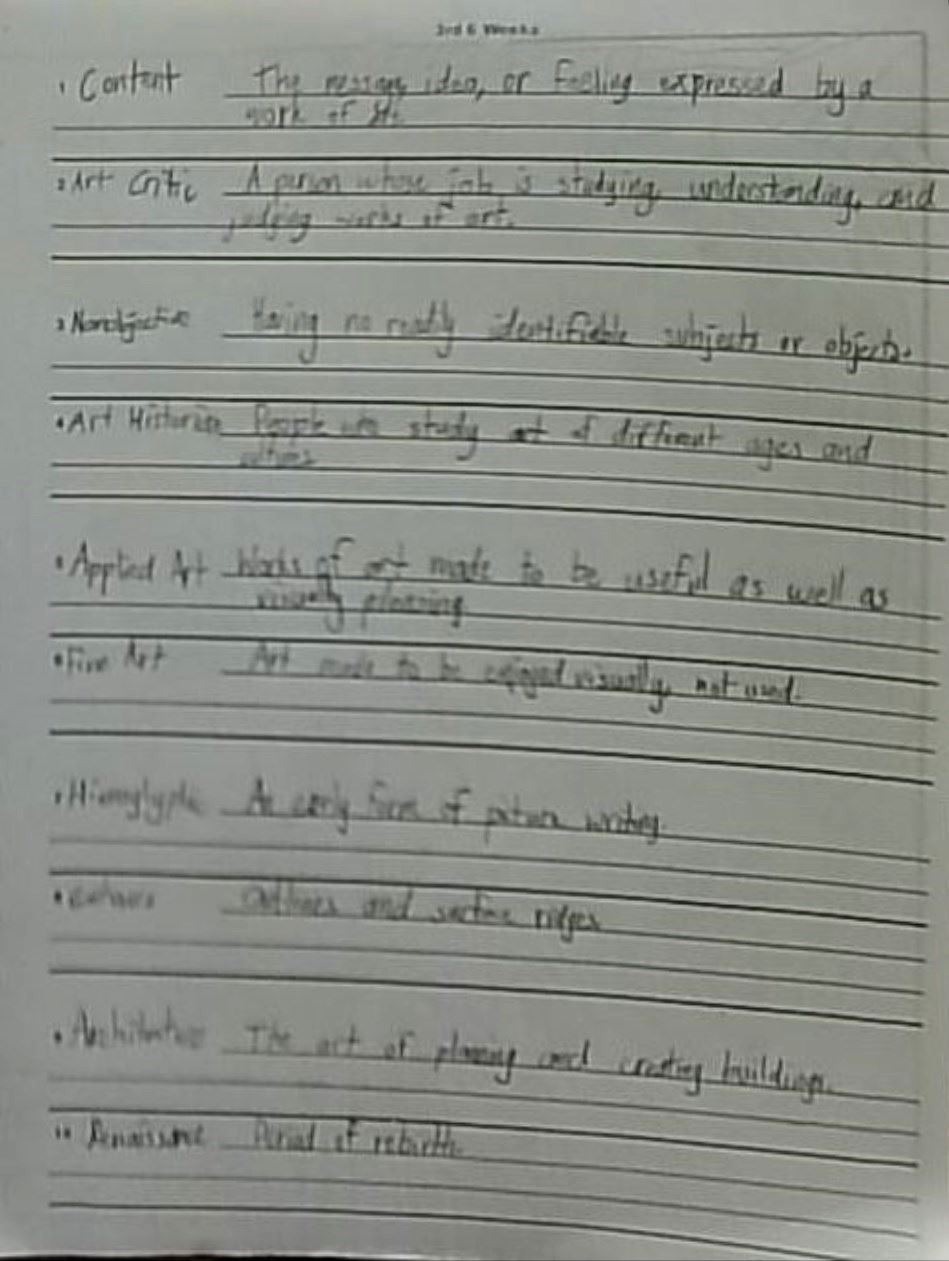 3rd 6 Weeks
1. Content The message, idea, or feeling expressed by a
work of art.
2. Art Critic A person whose job is studying, understanding, and
judging works of art.
3. Nonobjective Having no readily identifiable subjects or objects.
4. Art Historian People who study art of different ages and
cultures
5. Applied Art Works of art made to be useful as well as
visually pleasing
6. Fine Art Art made to be enjoyed visually, not used.
7. Hieroglyphic An early form of picture writing.
8. Contours Outlines and surface ridges
9. Architecture The art of planning and creating buildings.
10. Renaissance Period of rebirth.